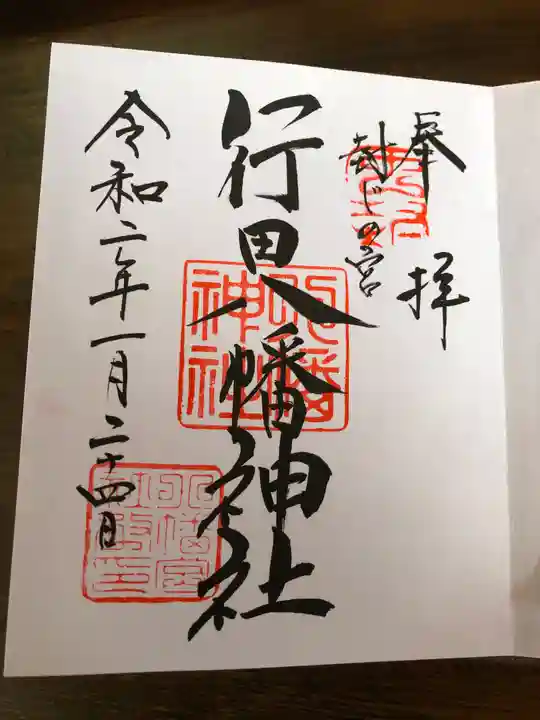 奉拝
封じの宮
行田八幡神社
令和二年一月二十四日